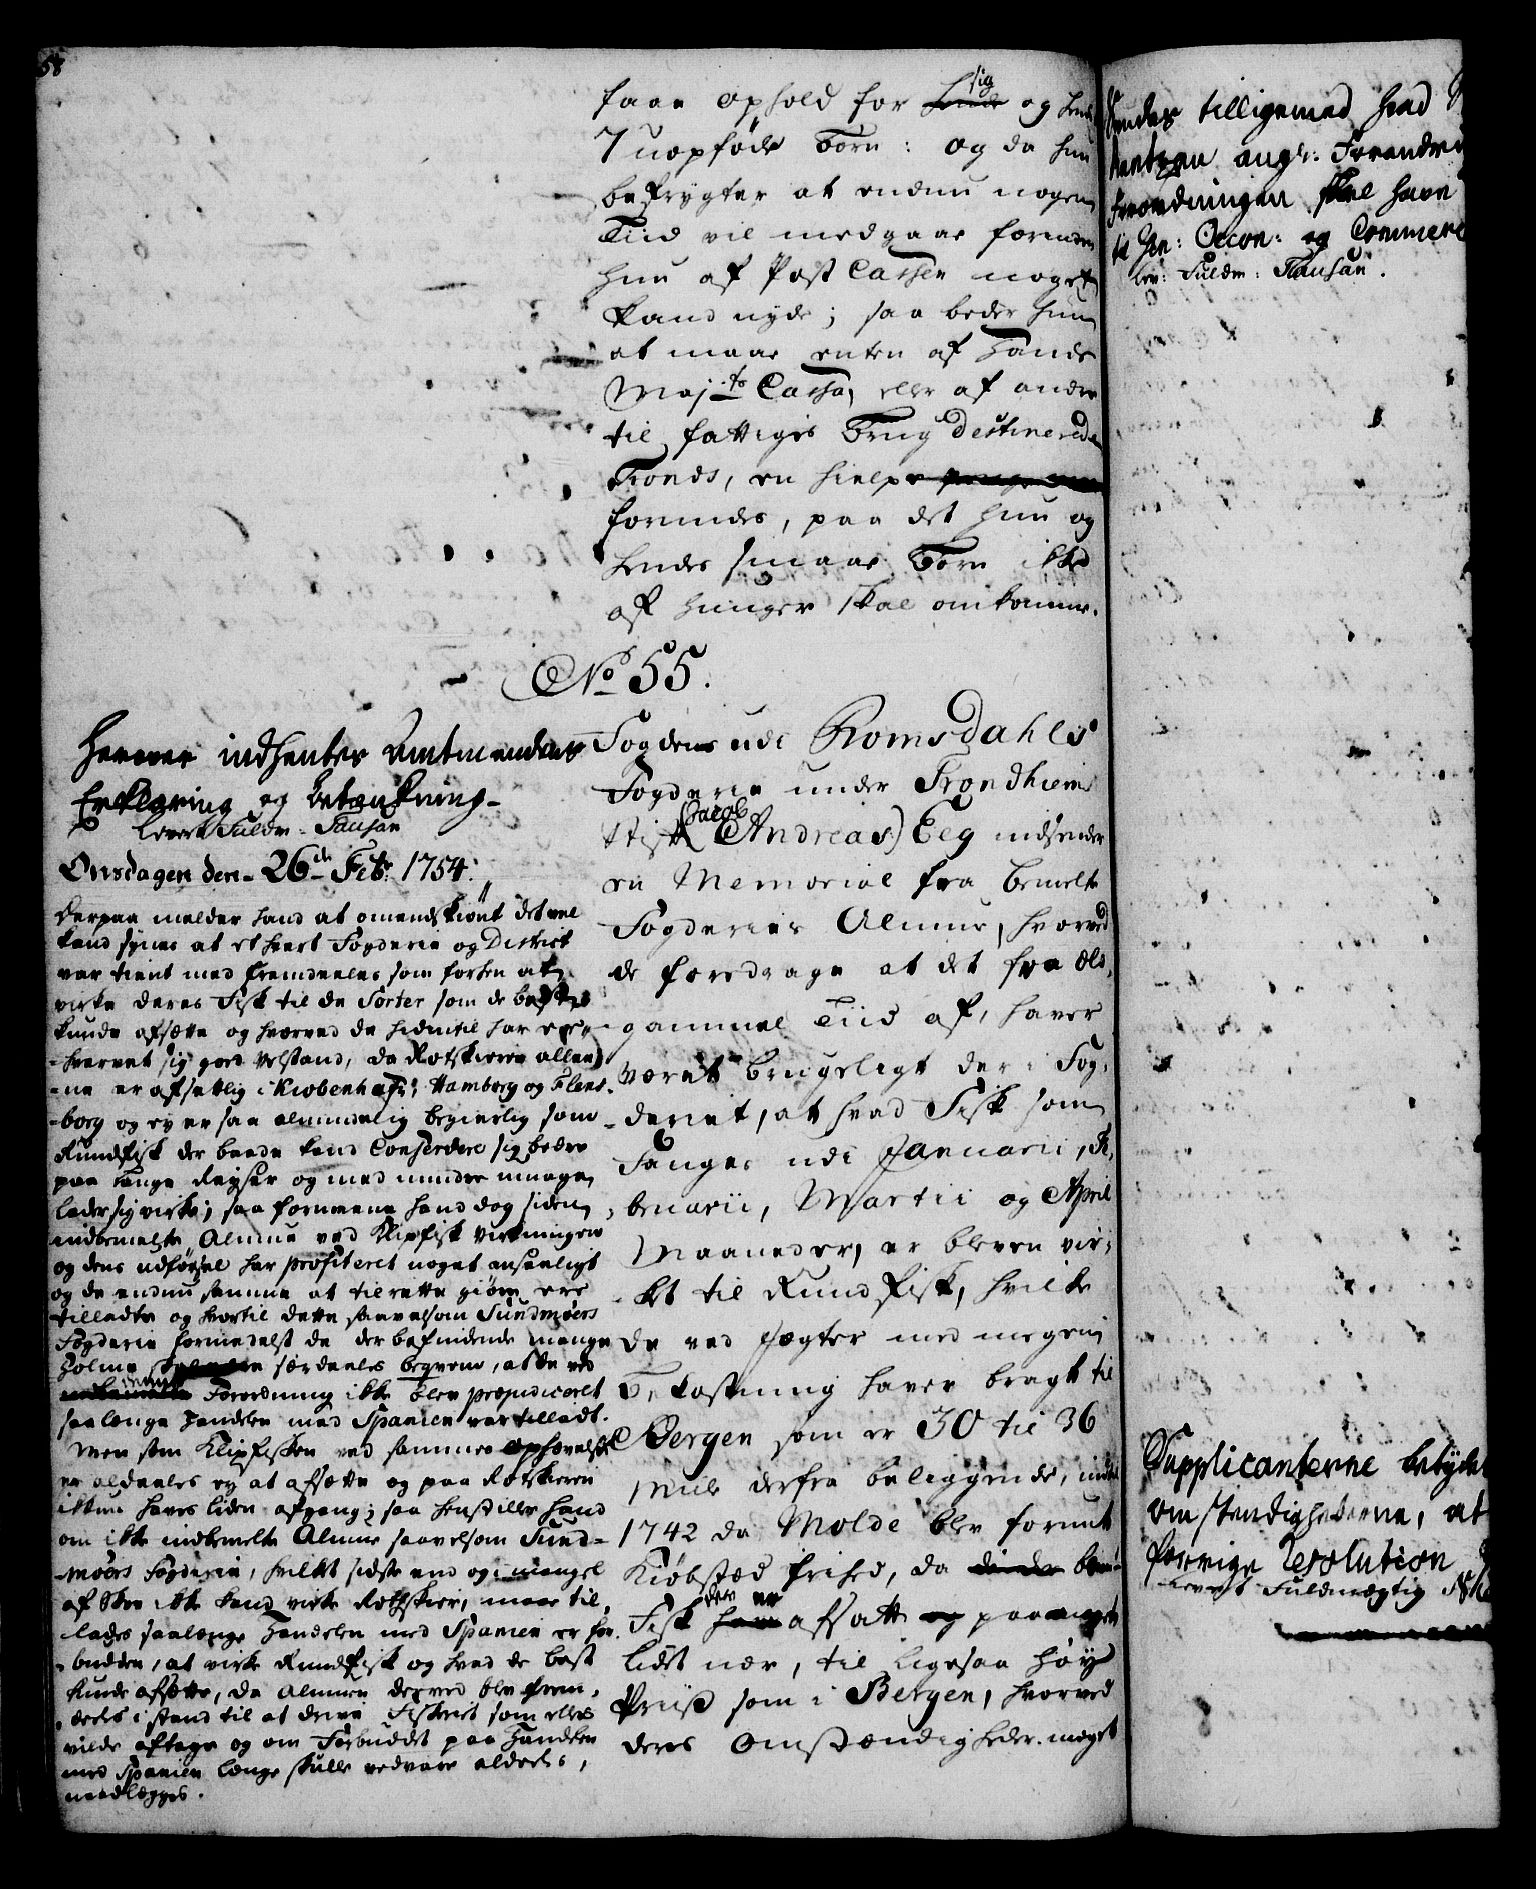 58
faae ophold for sig og hendes
7 uopføde Børn: og da hun
befrygter at endnu nogen
Tiid vil medgaae forinden
hun af Post Cassen noget
kand nyde; saa beder hun
at maae enten af Hands
Majts Cassa, eller af andre
til fattiges Brug destinerede
Fonds, en hielp
forundes, paa det hun og
hendes smaae Børn ikke
af hunger skal omkomme.
No 55.
Herover indhentes Amtmandens
Erklæring og betænkning
Levert Fuldm: Fausan
Onsdagen den 26de Febr: 1754.
Derpaa melder hand at omendskiønt det vel
kand synes at et hvert Fogderie og District
var tient med fremdeeles som forhen at
virke deres Fisk til de Sorter som de best
kunde afsætte og hvorved de hidintil har er-
hvervet sig goed Velstand, da Rotskieren allee-
ne er afsætlig i Kiøbenhafn, Hamborg og Flens-
borg og ey er saa almindelig begierlig som
Rundfisk der baade kand Conservere sig bedre
paa lange Reyser og med mindre umage
lader sig virke; saa formene hand dog siden
indbemelte Almue ved Klipfisk virkningen
og dens udførsel har profiteret noget anseeligt
og de endnu samme at tilrette giøre ere
tilladte og hvortil dette saavelsom Sundmøers
Fogderie formedelst de der befindende mange
Holme særdeeles beqvem, at de ved
Forordning ikke blev præjudiceret
saa længe Handelen med Spanien var tilladt.
Men som Klipfisken ved sammes ophævelse
er aldeeles ey at afsætte og paa Rotskieren
ikkun haves liden afgang; saa henstiller hand
om ikke indbemelte Almue saavelsom Sund-
møers Fogderie, hvilket sidste end og i mangel
af Skov ikke kand virke Rotskier, maae til-
lades saalænge Handelen med Spanien er for-
buden, at virke Rundfisk og hvad de best
kunde afsætte, da Almuen derved blev frem-
deeles i stand til at drive Fiskeriet som ellers
vilde aftage og om Forbuddet paa Handelen
med Spanien længe skulle vedvare aldeeles,
nedlægges.
Fogden udi Romsdahls
Fogderie under Trondhiems
Stift (Jacob Andreas) Eeg indsender
en Memorial fra bemelte
Fogderies Almue, hvorved
de foredrage at det fra Æld-
gammel Tiid af, haver
været brugeligt der i Fog-
deriet, at hvad Fisk som
fanges udi Januarii, Fe-
bruarii, Martii og April
Maaneder, er bleven vir-
ket til Rundfisk, hvilke
de ved Jægter med megen
Bekostning haver bragt til
Bergen som er 30 til 36
Mile derfra beliggende, indtil
1742 da Molde blev forundt
Kiøbsted frihed, da
Fisk der er afsatt paa
lidet nær, til ligesaa høy
Priis som i Bergen, hvorved
deres Omstændigheder meget
Sendes tilligemed hvad
ang:
Forordningen skal have
til Gen: Oecon: og Commerc
Lev: Fuldm: Fausan.
Supplicanterne betydes
omstændighederne, at
forrige Resolution
Levert Fuldmægtig